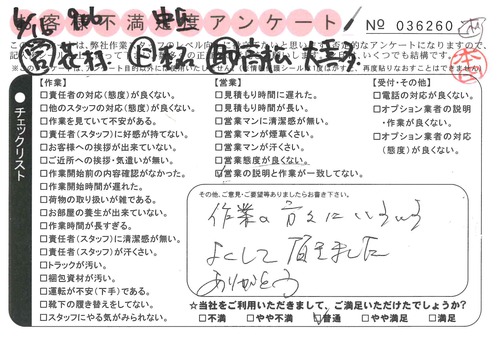 お客様不満足度アンケート
No 036260
このアンケートは、弊社作業スタッフのレベル向上
チェックリスト
【作業】
□責任者の対応(態度)が良くない。
□他のスタッフの対応(態度)が良くない。
□作業を見ていて不安がある。
□責任者(スタッフ)に好感が持てない。
□お客様への挨拶が出来ていない。
□ご近所への挨拶・気遣いが無い。
□作業開始前の内容確認がなかった。
□作業開始時間が遅れた。
□荷物の取り扱いが雑である。
□お部屋の養生が出来ていない。
□作業時間が長すぎる。
□責任者(スタッフ)に清潔感が無い。
□責任者(スタッフ)が汗くさい。
□トラックが汚い。
□梱包資材が汚い。
□運転が不安(下手)である。
□靴下の履き替えをしてない。
□スタッフにやる気がみられない。
【営業】
□見積もり時間に遅れた。
□見積もり時間が長い。
□営業マンに清潔感が無い。
□営業マンが煙草くさい。
□営業マンが汗くさい。
□営業態度が良くない。
□営業の説明と作業が一致してない。
【受付・その他】
□電話の対応が良くない。
□オプション業者の説明
・作業が良くない。
□オプション業者の対応
(態度)が良くない。
その他、ご意見・ご要望等ありましたらお書き下さい。
作業の方々にいろいろ
よくして頂きました
ありがとう
☆当社をご利用いただきまして、ご満足いただけたでしょうか?
□不満 □やや不満 □普通 □やや満足 □満足